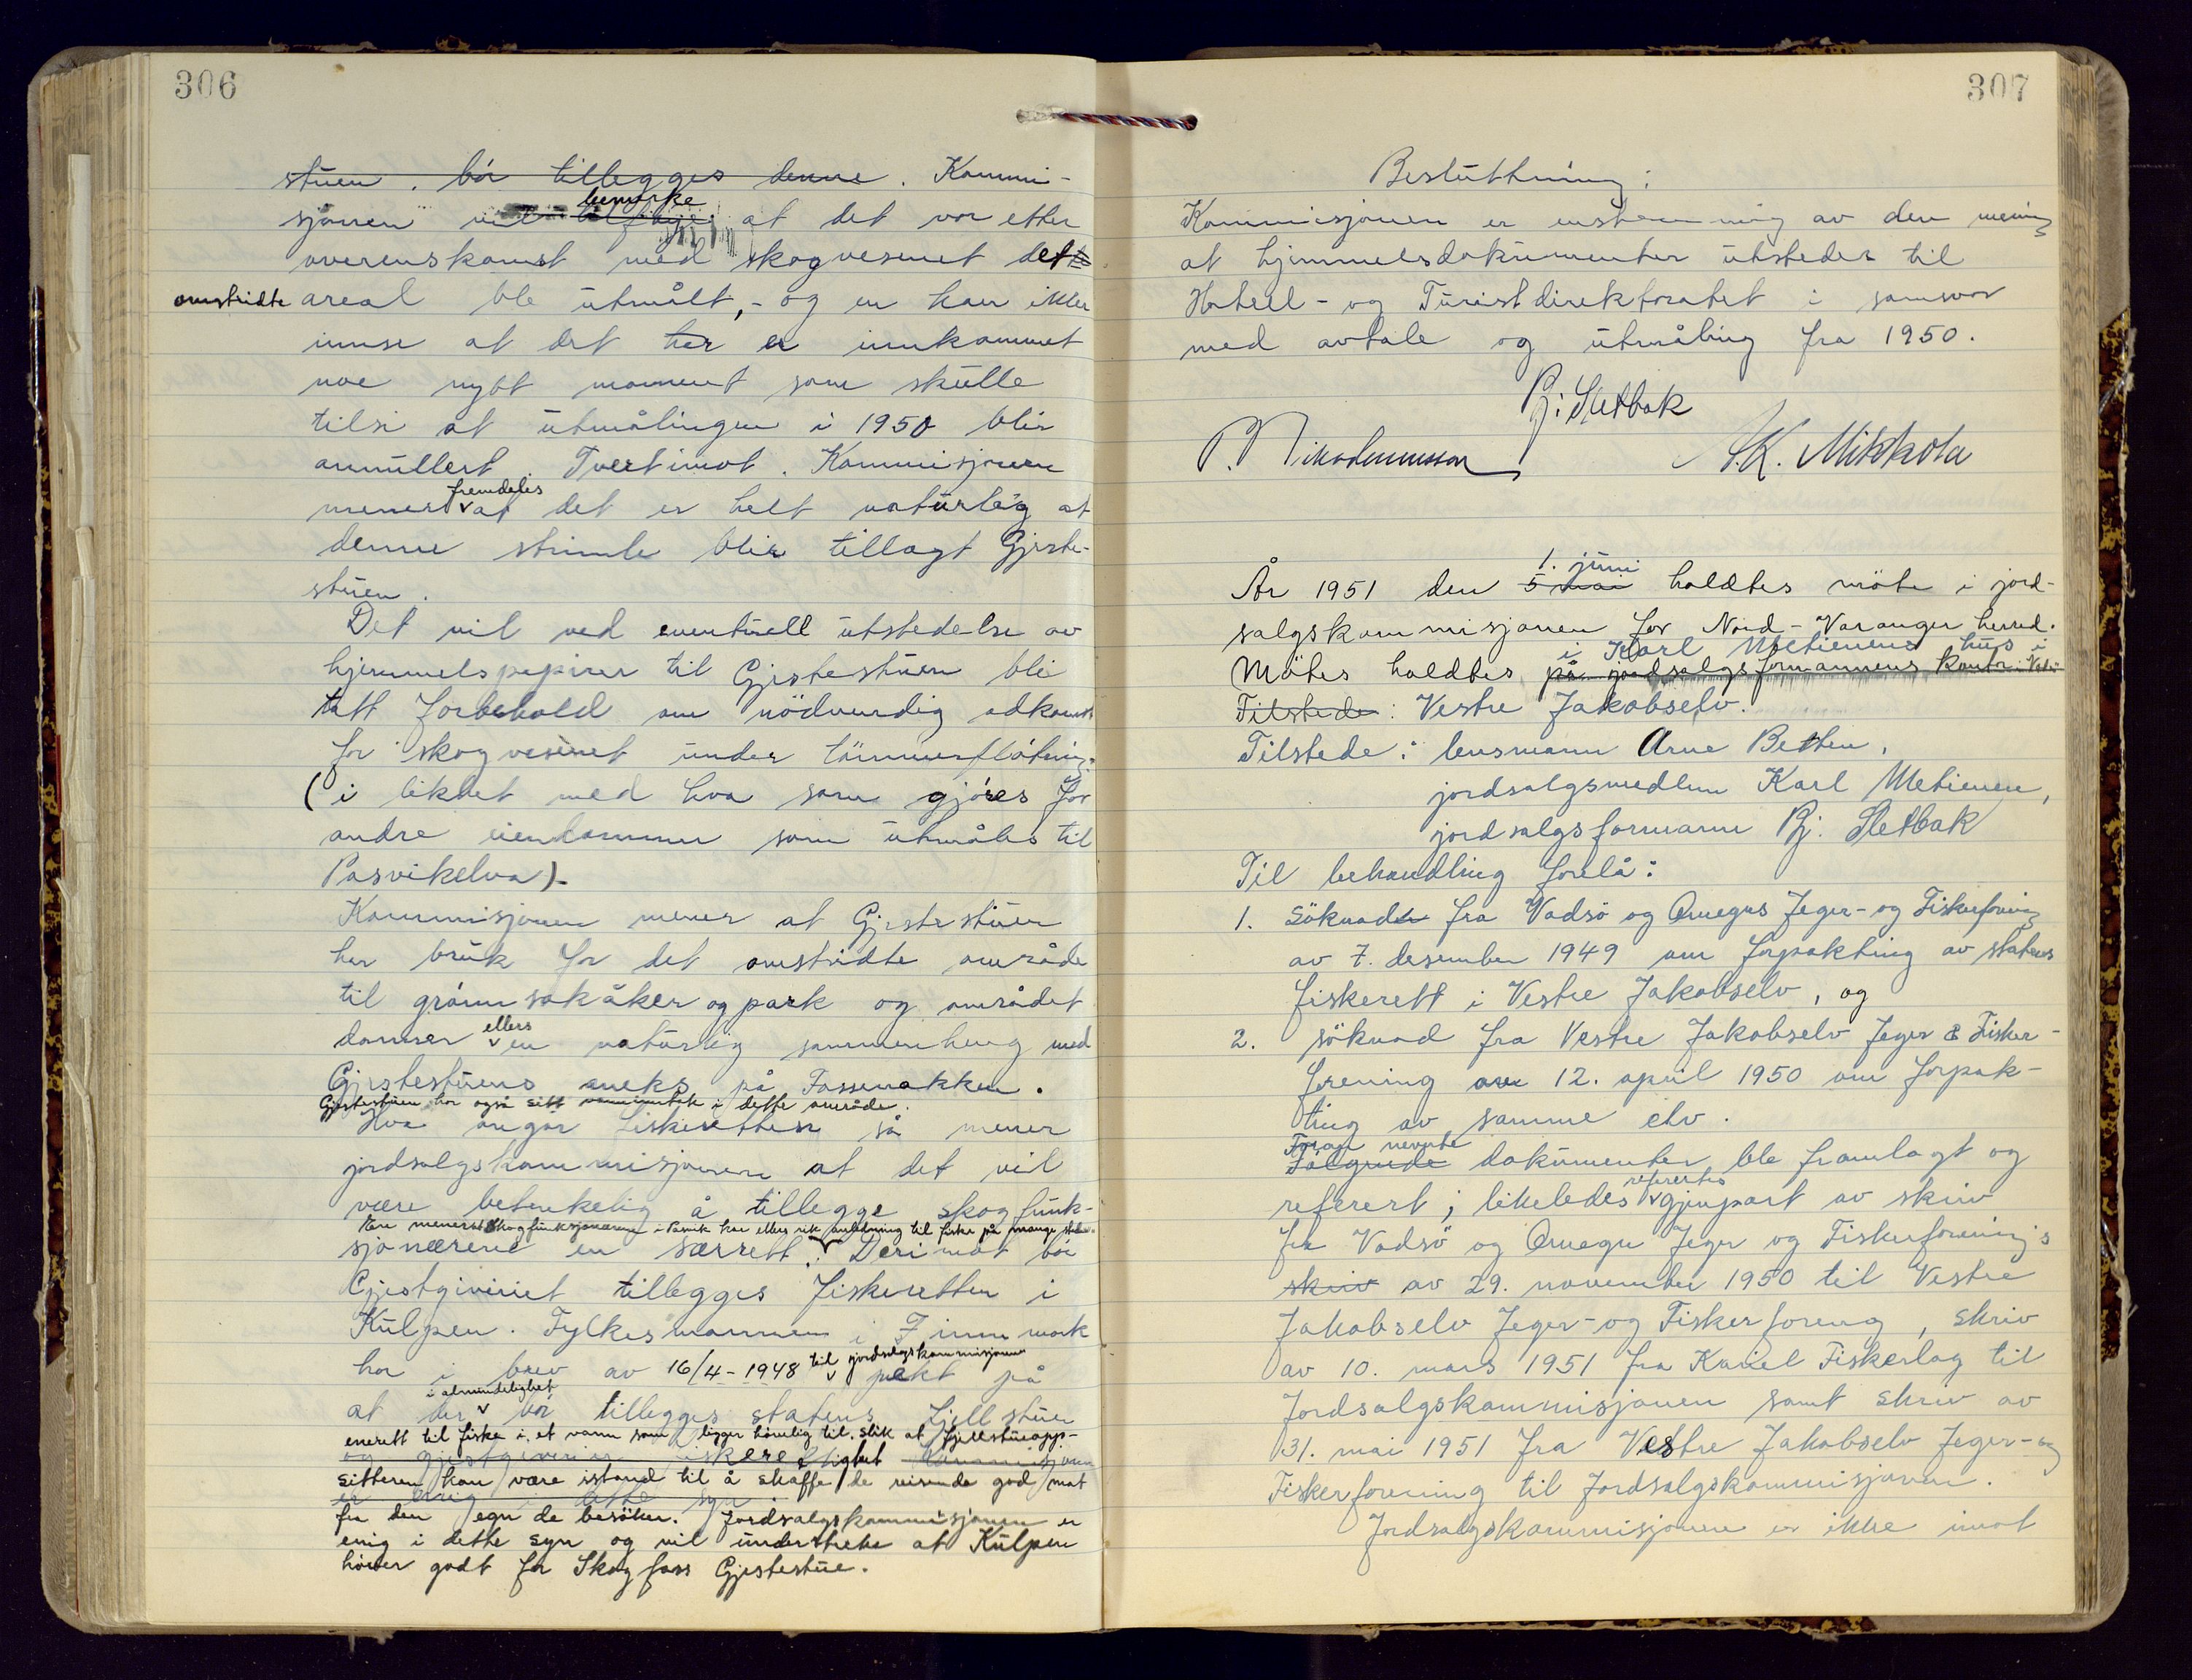 306
stuen. bör tillegges denne. Kommi-
sjonen vil tilføye bemerke at det var etter
overenskomst med skogvesenet det
omstridte areal ble utmålt, - og en kan ikke
innse at det her er innkommet
noe nytt moment som skulle
tilsi at utmålingen i 1950 blir
annullert. Tvertimot. Kommisjonen
mener fremdeles at det er helt naturleg at
denne strimle blir tillagt Gjeste-
stuen.
Det vil ved eventuell utstedelse av
hjemmelspapirer til Gjestestuen bli
tatt forbehold om nödvendig adkomst
for skogvesenet under tömmerflötning
(i likhet med hva som gjöres for
andre eiendommer som utmåles til
Pasvikelva).
Kommisjonen mener at Gjestestuen
har bruk for det omstridte område
til grönnsakåker og park og området
danner ellers en naturlig sammenheng med
Gjestestuens aneks på Fossenakken.
Gjestestuen har også sitt vanninntak i dette område.
Hva angår fiskeretten så mener
jordsalgskommisjonen at det vil
være betenkelig å tillegge skogfunk-
sjonærene en særrett. Derimot bör
Skogfunksjonærene i Pasvik har ellers rik anledning til fiske på mange steder.
Gjestgiveriet tillegges fiskeretten i
Kulpen. Fylkesmannen i Finnmark
har i brev av 16/4-1948 til jordsalgskommisjonen pekt på
at der i almindelighet bör tillegges statens fjellstuer
enerett til fiske i et vann som ligger hövelig til. slik at fjellstueopp-
og gjestgiverier fiskerettighet Kommisjonen
sitteren kan være istand til å skaffe de reisende god mat
er enig i dette syn.
fra den egn de besöker. Jordsalgskommisjonen er
enig i dette syn og vil understreke at Kulpen
höver godt for Skogfoss Gjestestue.
307
Beslutning:
Kommisjonen er enstemmig av den mening
at hjemmelsdokumenter utstedes til
Hotell- og Turistdirektoratet i samsvar
med avtale og utmåling fra 1950.
Bj: Sletbak
P. Nikodemusson K. Mikkola
År 1951 den 5 mai 1. juni holdtes möte i jord-
salgskommisjonen for Nord-Varanger herred.
Mötes holdtes på jordsalgsformannens kontor i Karl Metienens hus i
Tilstede: Vestre Jakobselv.
Tilstede: lensmann Arne Bethen,
jordsalgsmedlem Karl Metienen,
jordsalgsformann Bj: Sletbak
Til behandling forelå:
1. Söknad fra Vadsö og Omegns Jeger- og Fiskerforening
av 7. desember 1949 om forpakting av statens
fiskerett i Vestre Jakobselv, og
2. söknad fra Vestre Jakobselv Jeger & Fisker-
forening av 12. april 1950 om forpak-
ting av samme elv.
Fölgende Foran nevnte dokumenter ble framlagt og
referert; likeledes refertes gjenpart av skriv
fra Vadsö og Omegn Jeger og Fiskerforening's
skriv av 29. november 1950 til Vestre
Jakobselv Jeger- og Fiskerforeng, skriv
av 10. mars 1951 fra Kariel Fiskerlag til
Jordsalgskommisjonen samt skriv av
31. mai 1951 fra Vestre Jakobselv Jeger- og
Fiskerforening til Jordsalgskommisjonen.
Jordsalgskommisjonen er ikke imot